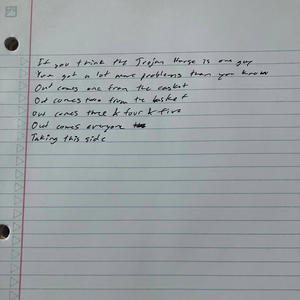 If you think the Trojan Horse is one guy
You got a lot more problems than you know
Out comes one from the casket
Out comes two from the basket
Out comes three & four & five
Out comes everyone
Taking this side